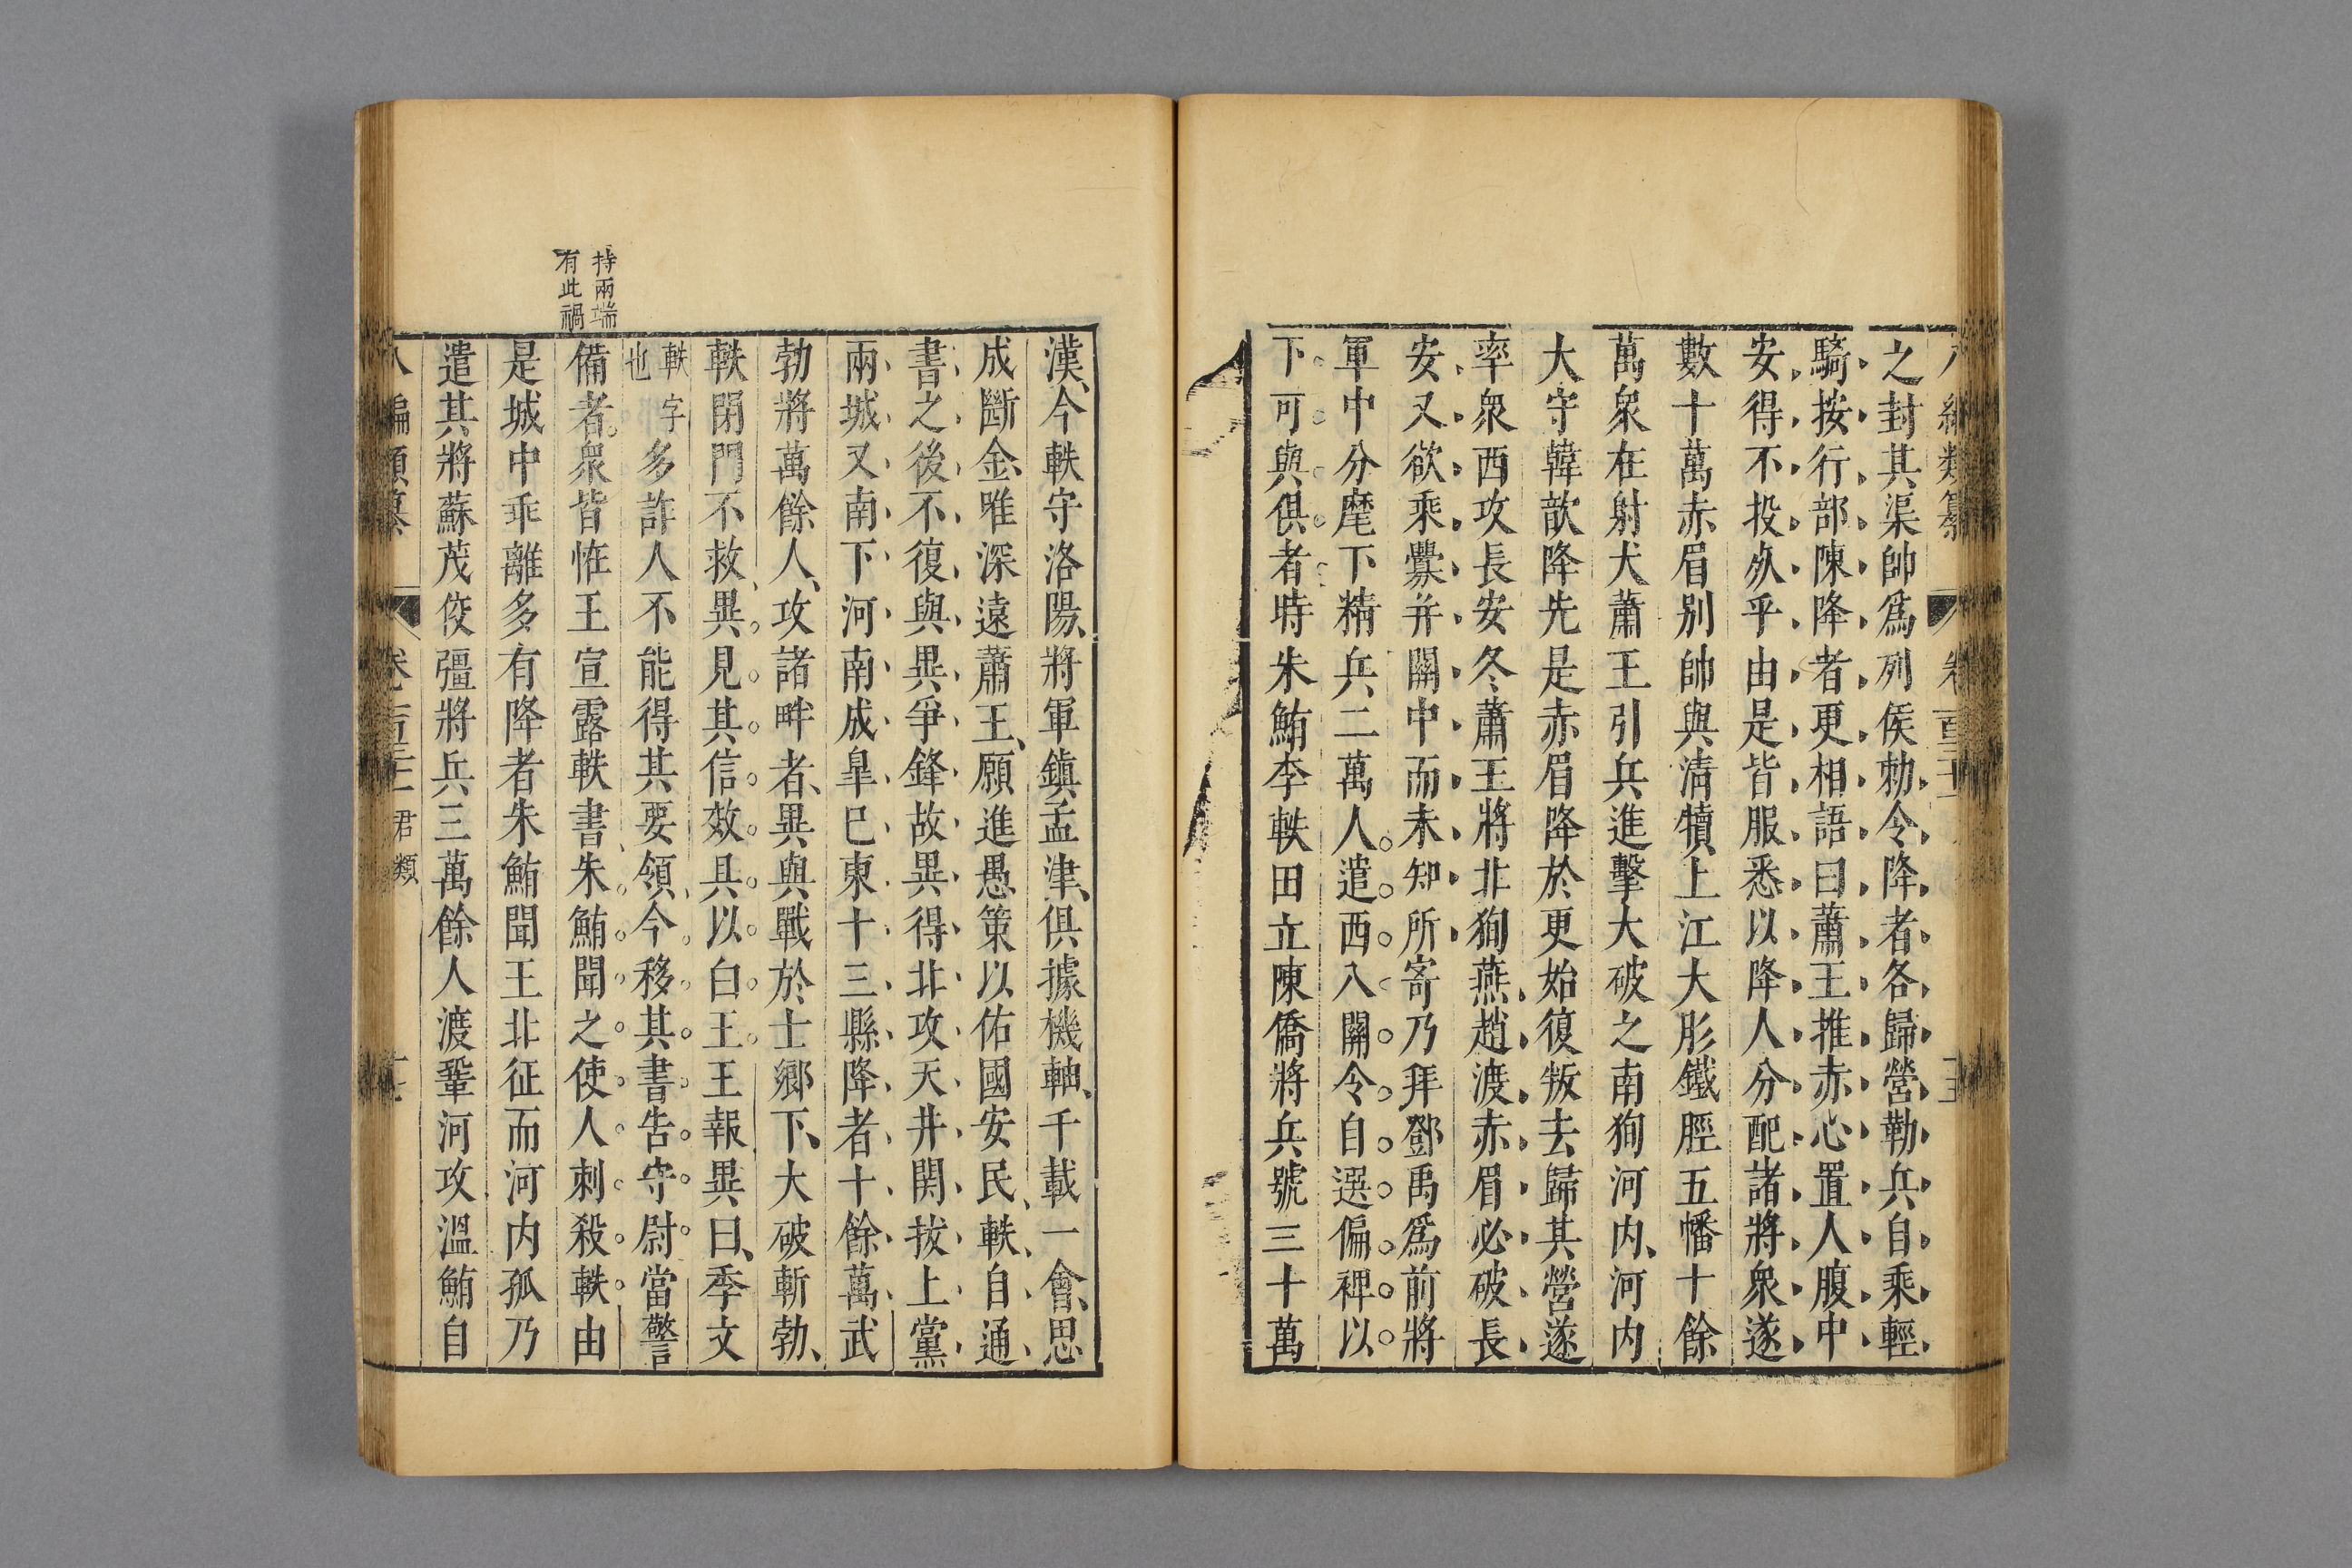 之封其渠帥爲列侯勅令降者各歸營勒兵自乘輕
騎按行部陳降者更相語曰蕭王推赤心置人腹中
安得不投㱔乎由是皆服悉以降人分配諸將衆遂
數十萬赤眉别帥與淸犢上江大肜鐵脛五幡十餘
萬衆在射犬蕭王引兵進擊大破之南狥河内、河内
大守韓歆降先是赤眉降於更始復叛去歸其營遂
率衆西攻長安冬蕭王將北狥燕趙渡赤眉必破長
安又欲乘釁并關中而未知所寄乃拜鄧禹爲前將
軍中分麾下精兵二萬人遣西入關令自選偏裨以
下可與俱者時朱鮪李軼田立陳僑將兵號三十萬
漢、今軼守洛陽、將軍鎮孟津、俱據機軸、千載一會、思
成斷金、唯深遠蕭王、願進愚策以佑國安民、軼自通
書之後不復與異爭鋒故異得北攻天井関拔上黨
兩城又南下河南成臯巳東十三縣降者十餘萬武
勃將萬餘人、攻諸畔者、異與戰於士鄉下、大破斬勃、
軼閉門不救、異見其信效具以白王王報異曰、季文
軼字也多詐人不能得其要領、今移其書告守尉當警
備者。衆皆恠王宣露軼書朱鮪聞之使人刺殺軼由
是城中乖離多有降者朱鮪聞王北征而河内孤乃
遣其將蘇茂佼彊將兵三萬餘人渡鞏河攻溫鮪自
持兩端
有此禍
君類